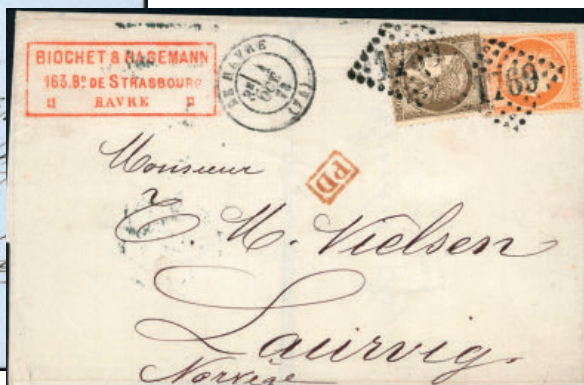 BIOCHET & HAGEMANN
163.Bd. DE STRASBOURG
HAVRE
LE HAVRE
1
OCT
1769
1769
PD
Monsieur
C. M. Nielsen
Laurvig.
Norvége